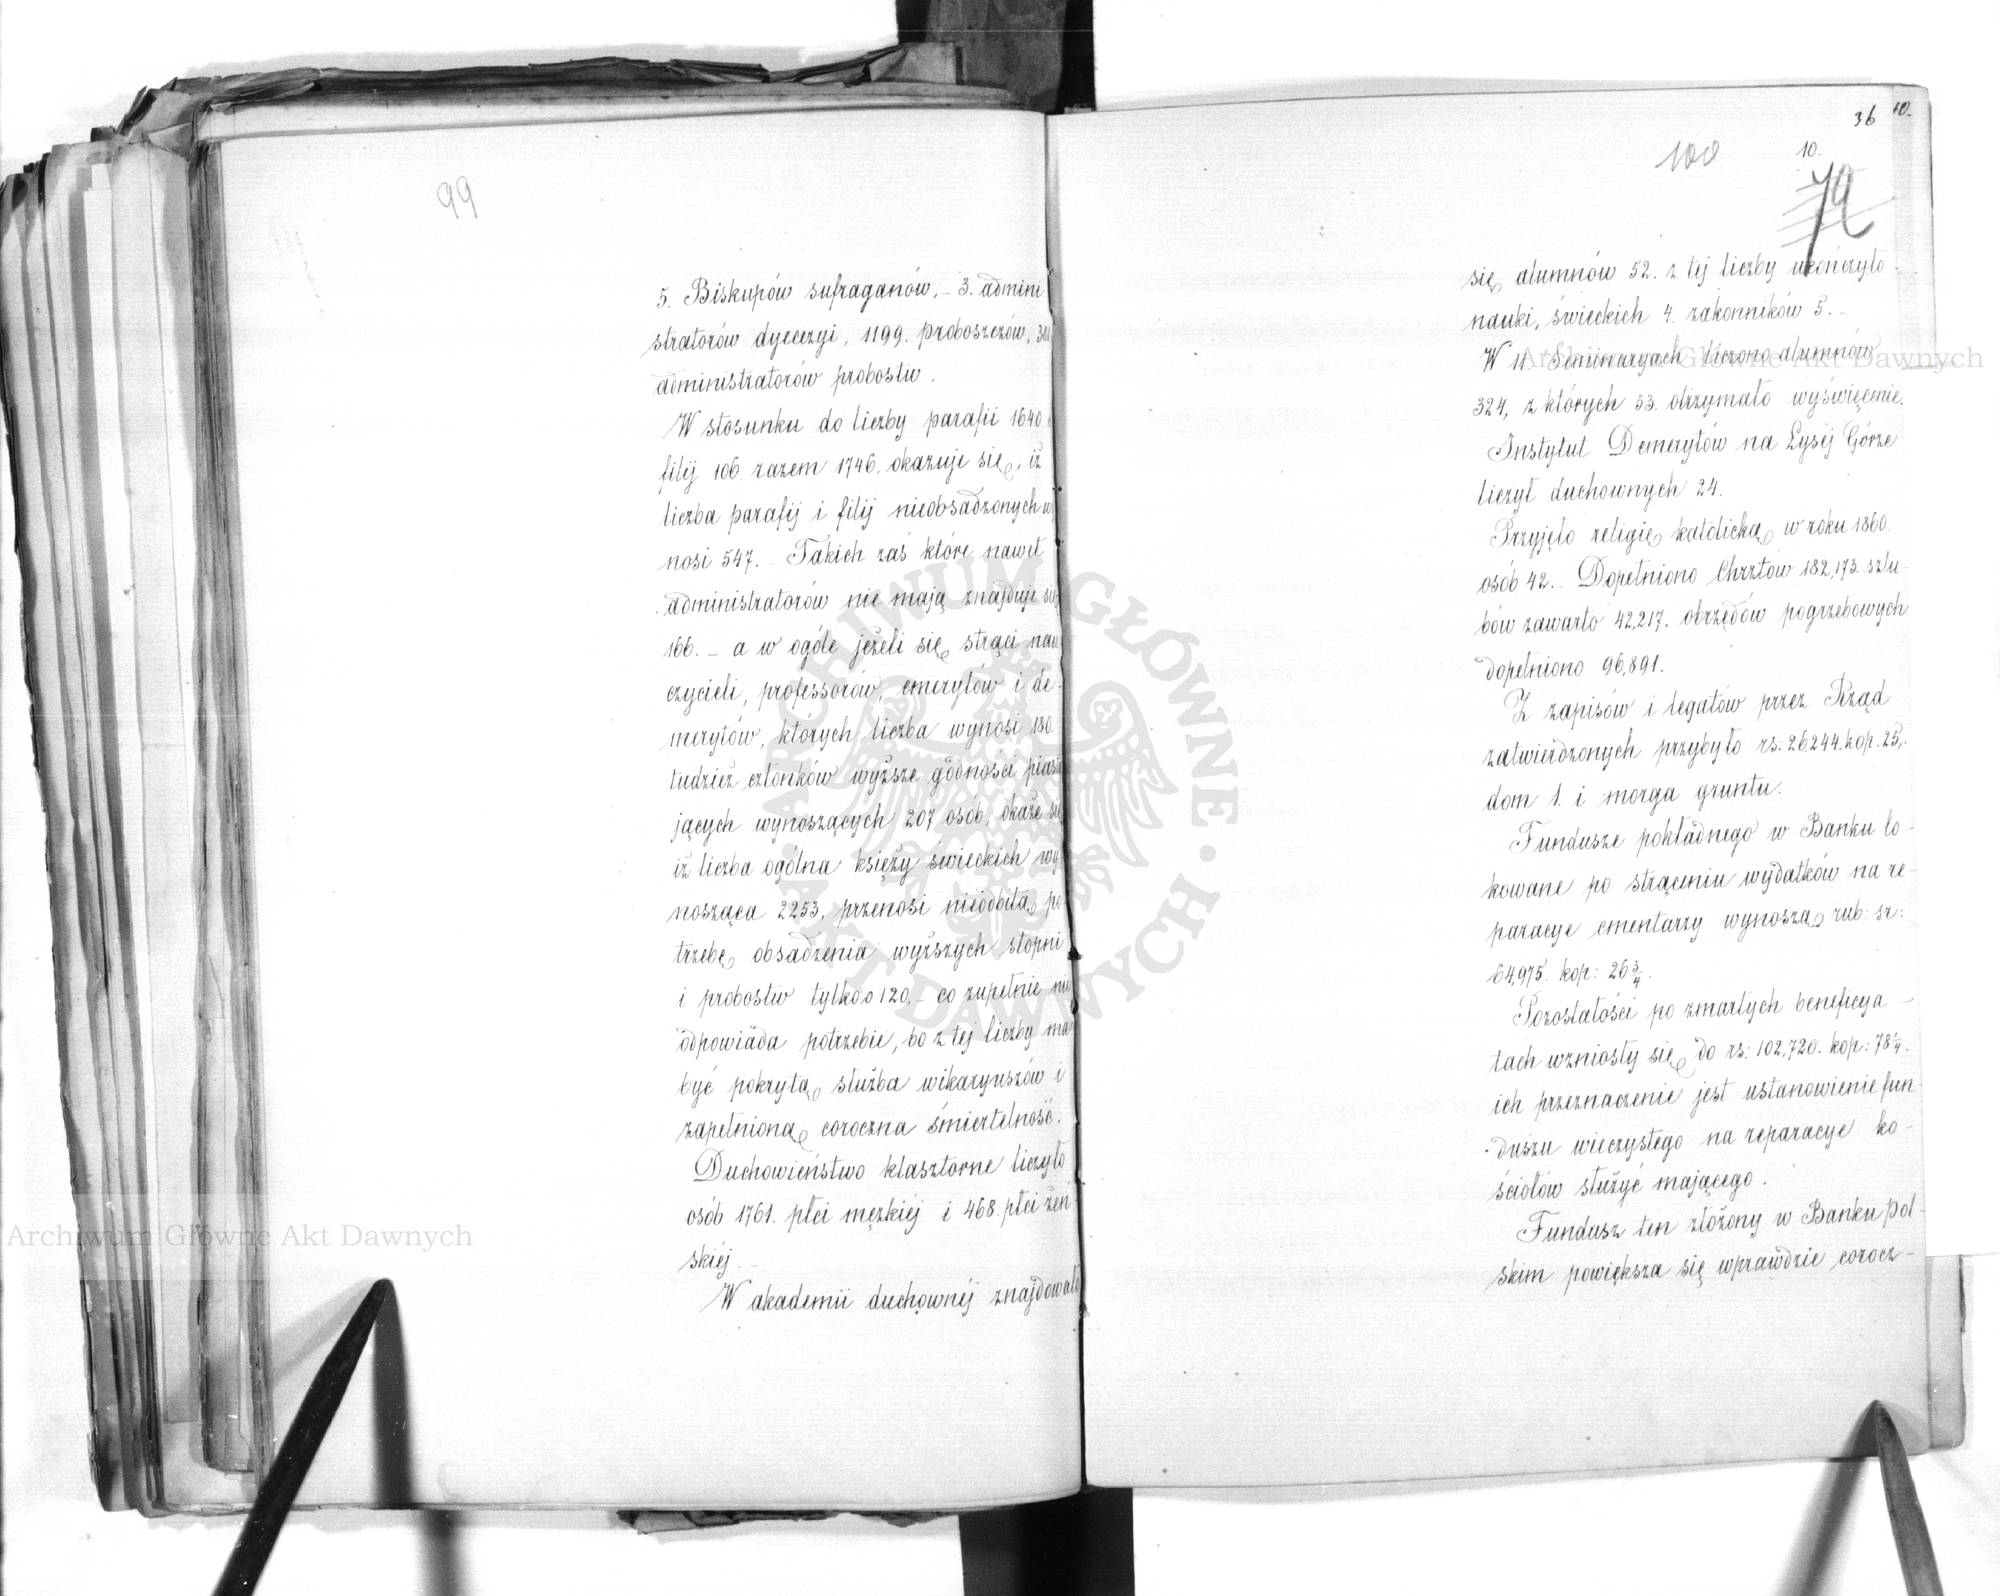 99
5. Biskupów sufraganów, – 3. admini
stratorów dyecezyi, 1199. proboszczów,
administratorów probostw.
W stosunku do liczby parafii 1640
filij 106 razem 1746. okazuje się, iż
liczba parafij i filij nieobsadzonych wy
nosi 547. – Takich zaś które nawet
administratorów nie mają znajduje się
166. – a w ogóle jeżeli się strąci nau
czycieli, professorów, emerytów i de-
merytów, których liczba wynosi 180.
tudzież członków wyższe godności piastu
jących wynoszących 207 osób, okaże się
iż liczba ogólna księży świeckich wy
nosząca 2253, przenosi nieodbitą po
trzebę obsadzenia wyższych stopni
i probostw tylko o 120, – co zupełnie nie
odpowiada potrzebie, bo z tej liczby ma
być pokrytą służba wikaryuszów i
zapełnioną coroczna śmiertelność.
Duchowieństwo klasztorne liczyło
osób 1761. płci męzkiéj i 468. płci żeń
skiéj. –
W akademii duchownéj znajdowało
36 10.
100
10.
się alumnów 52. z tej liczby ukończyło
nauki, świeckich 4. zakonników 5. –
W 11. Seminaryach liczono alumnów
324, z których 53. otrzymało wyświęcenie.
Instytut Demerytów na Łyséj Górze
liczył duchownych 24.
Przyjęło religię katolicką w roku 1860.
osób 42. . Dopełniono Chrztów 182,173. szlu-
bów zawarto 42,217. obrzędów pogrzebowych
dopełniono 96,891.
Z zapisów i legatów przez Rząd
zatwierdzonych przybyło rs: 26,244. kop. 25,.
dom 1. i morga gruntu.
Fundusze pokładnego w Banku lo-
kowane po strąceniu wydatków na re-
paracye cmentarzy wynoszą rub: sr:
64,975. kop: 26 3/4.
Pozostałości po zmarłych beneficya-
tach wzniosły się do rs: 102,720. kop: 78 1/4.
ich przeznaczenie jest ustanowienie fun-
duszu wieczystego na reparacye ko-
ściołów służyć mającego.
Fundusz ten złożony w Banku Pol-
skim powiększa się wprawdzie corocz-
Archiwum Główne Akt Dawnych
Archiwum Główne Akt Dawnych
ARCHIWUM GŁÓWNE AKT DAWNYCH